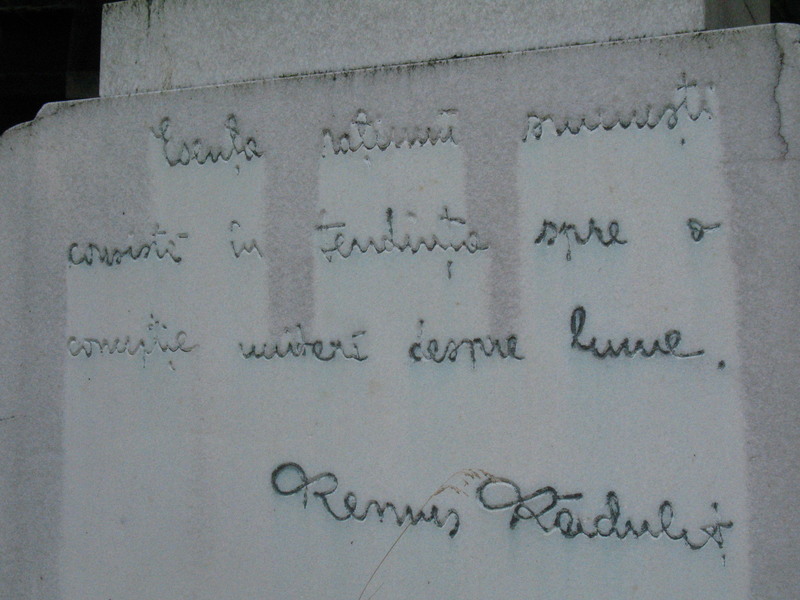 Esența rațiunii omenești
consistă în tendința spre o
concepție unitară despre lume.
Remus Răduleț